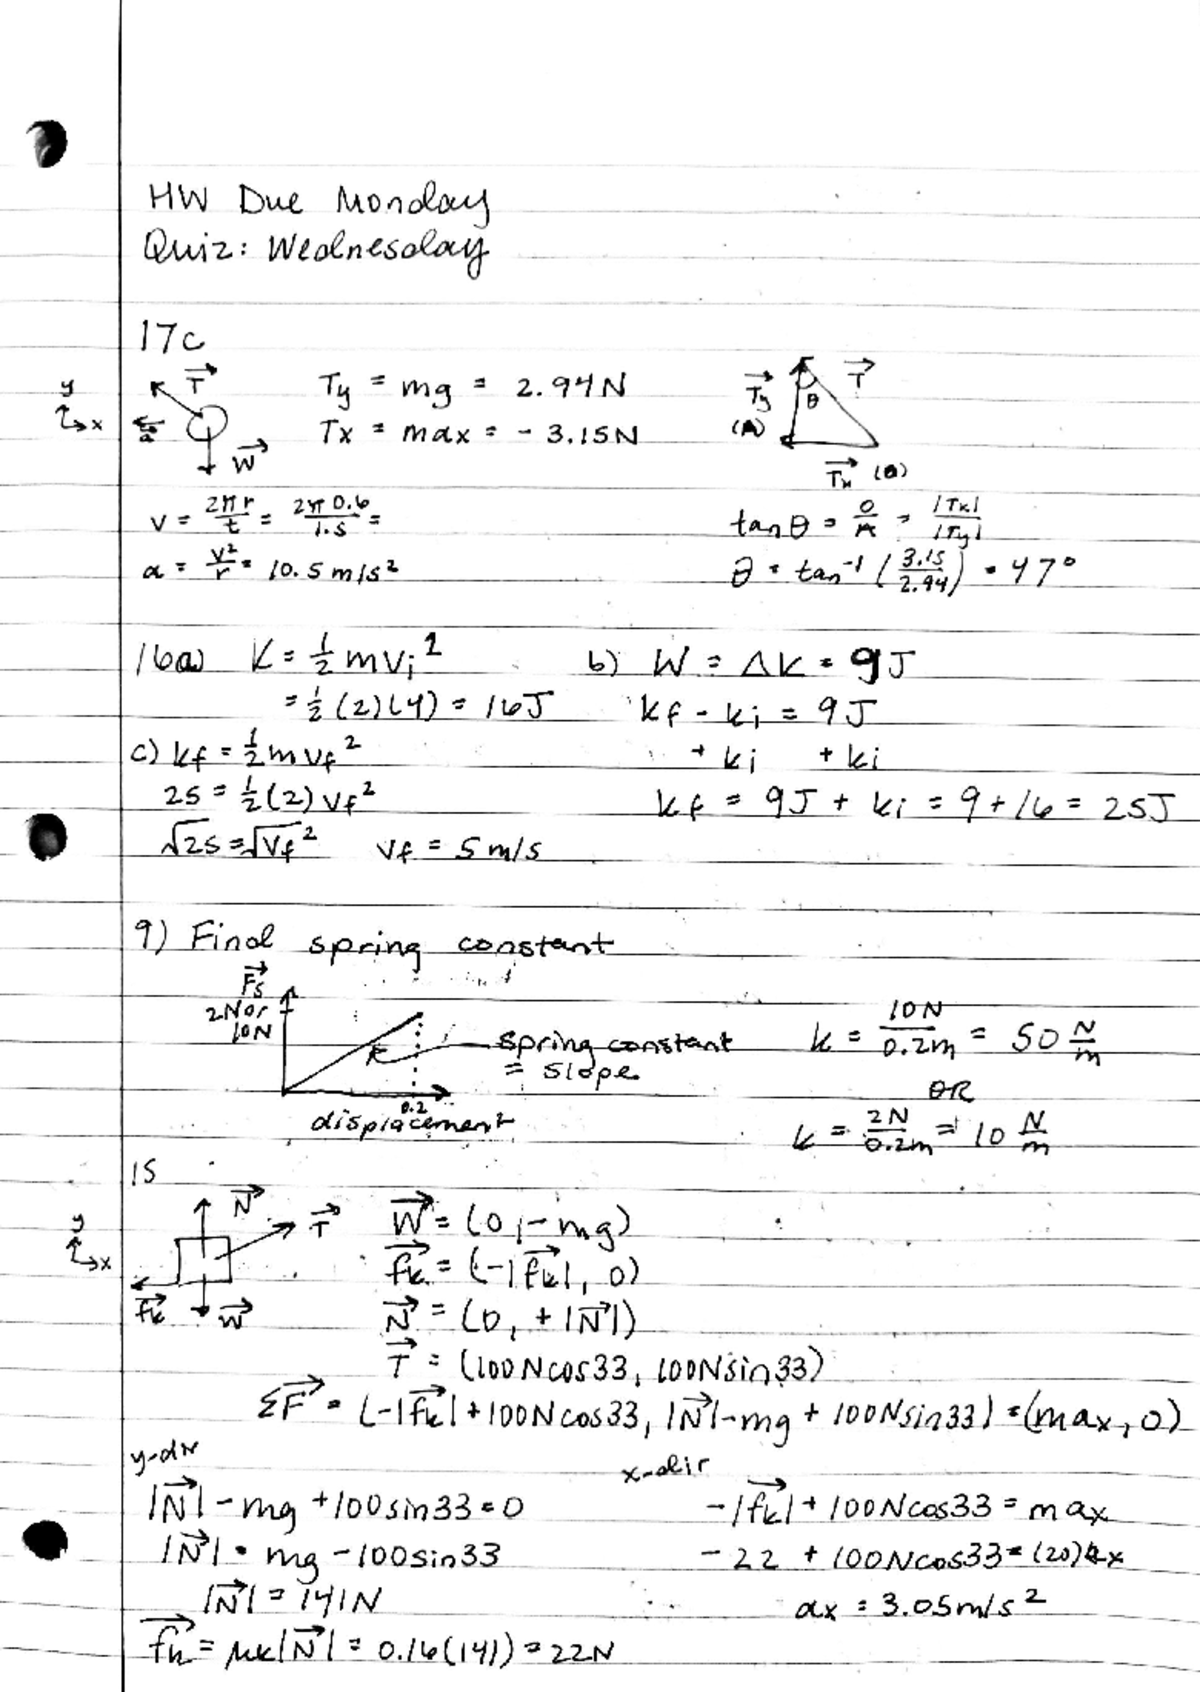 HW Due Monday
Quiz: Wednesday
17c
y
x
T
a
W
Ty = mg = 2.94N
Tx = max = - 3.15N
Ty
(A)
θ
T
Tx (O)
v = 2πr/t = 2π0.6/1.5 =
a = v²/r = 10.5 m/s²
tanθ = O/A = |Tx|/|Ty|
θ = tan⁻¹(3.15/2.94) = 47°
16a) K = ½mvi²
= ½(2)(4) = 16J
b) W = ΔK = 9J
kf - ki = 9J
+ ki + ki
kf = 9J + ki = 9 + 16 = 25J
c) kf = ½mvf²
25 = ½(2)vf²
√25 = √vf² vf = 5 m/s
9) Final spring constant
Fs
2N or
10N
0.2
displacement
spring constant
= slope
k = 10N/0.2m = 50 N/m
OR
k = 2N/0.2m = 10 N/m
15
y
x
N
T
fk
W
W = (0, -mg)
fk = (-|fk|, 0)
N = (0, +|N|)
T = (100Ncos33, 100Nsin33)
ΣF = (-|fk| + 100Ncos33, |N| - mg + 100Nsin33) = (max, 0)
y-dir
|N| - mg + 100sin33 = 0
|N| = mg - 100sin33
|N| = 141N
fk = μk|N| = 0.16(141) = 22N
x-dir
-|fk| + 100Ncos33 = max
- 22 + 100Ncos33 = (20)ax
ax = 3.05m/s²